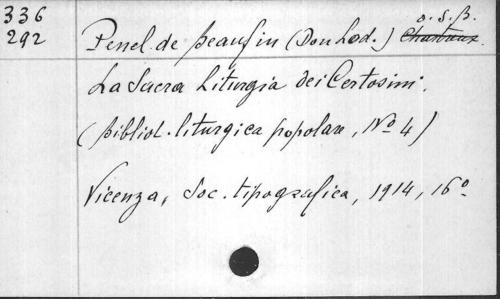 336
292
o. S. B.
Penel de Beaufin (Don Lod.) Chartreux.
La Sacra Liturgia dei Certosini.
(Bibliot. liturgica popolare, No 4)
Vicenza, Soc. tipografica, 1914, 16º